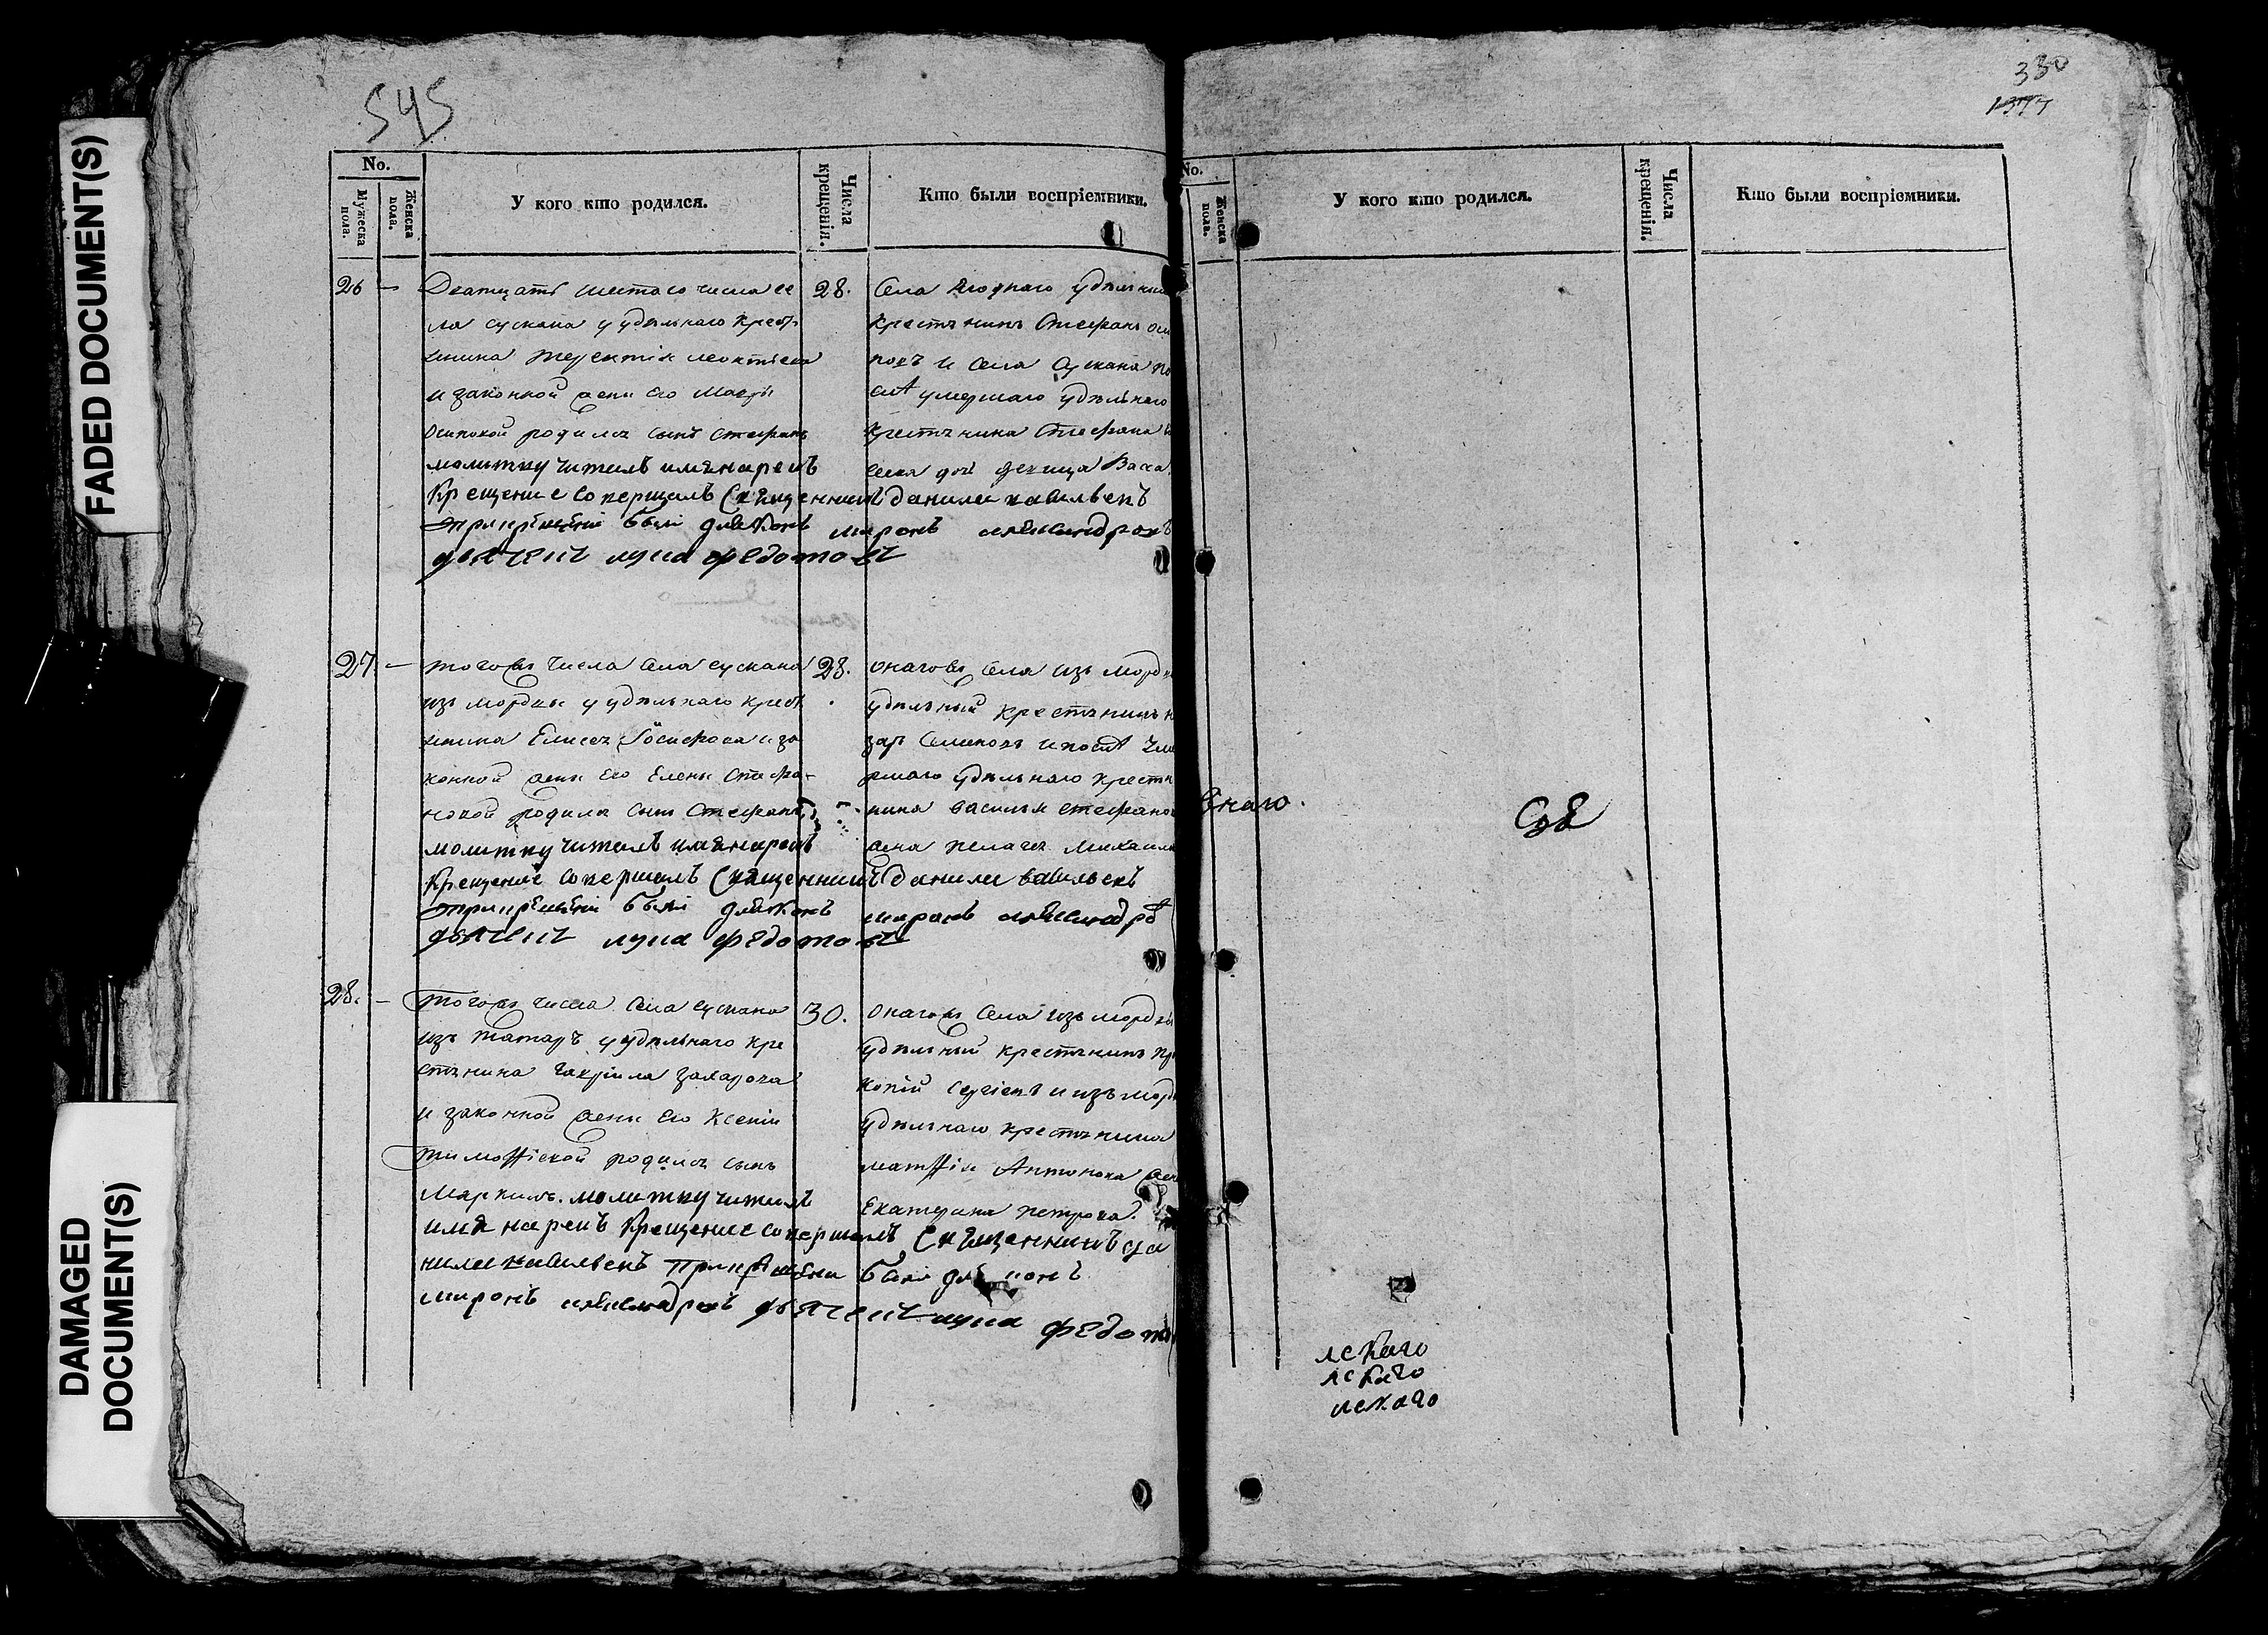 FADED DOCUMENT(S)
DAMAGED DOCUMENT(S)
545
No.
Мужеска пола.
Женска пола.
У кого кто родился.
Числа крещенія.
Кто были воспріемники.
26 —
Дватцать шестаго числа се
ла сускана у удѣльнаго кресть
янина Терентія Леонтьева
и законной жены его Марѳы
Осиповой родился сынъ Стефанъ
молитву читалъ имя нарекъ
Крещение совершалъ Священникъ Данила Васильевъ
При крещении были дьяконъ Миронъ Александровъ
дьячекъ Лука Федотовъ
28.
Села Ягоднаго удѣльный
крестьянинъ Стефанъ
и села Сускана по
слѣ умершаго удѣльнаго
крестьянина Стефана
дочь девица Васса
27 —
тогожъ числа села сускана
изъ мордвы у удѣльнаго кресть
янина Елисея Иосифова и за
конной жены его Елены Стефа-
новой родился сынъ Стефанъ
молитву читалъ имя нарекъ
Крещение совершалъ Священникъ Данила Васильевъ
При крещении были дьяконъ Миронъ Александро
дьячекъ Лука Федотовъ
28.
онагожъ села изъ мордвы
удѣльный крестьянинъ
зар Семеновъ и послѣ уме
ршаго удѣльнаго крестья
нина Василья Стефанов
жена Пелагея Михаил
28. —
тогожъ числа села сускана
изъ татаръ у удѣльнаго кре
стьянина Гаврила Захарова
и законной жены его Ксении
Тимоѳѣевой родился сынъ
молитву читалъ
имя нарекъ Крещение совершалъ Священникъ Да
нила Васильевъ При крещении были дьяконъ
Миронъ Александровъ дьячекъ Лука Федото
30.
онагожъ села изъ мордвы
удѣльный крестьянинъ Про
копій Сергѣевъ и изъ морд
удѣльнаго крестьянина
Матѳѣя Антонова жен
Екатерина Петрова.
330
1377
No.
Женска пола.
У кого кто родился.
Числа крещенія.
Кто были воспріемники.
знаго.
лскаго
лскаго
искаго